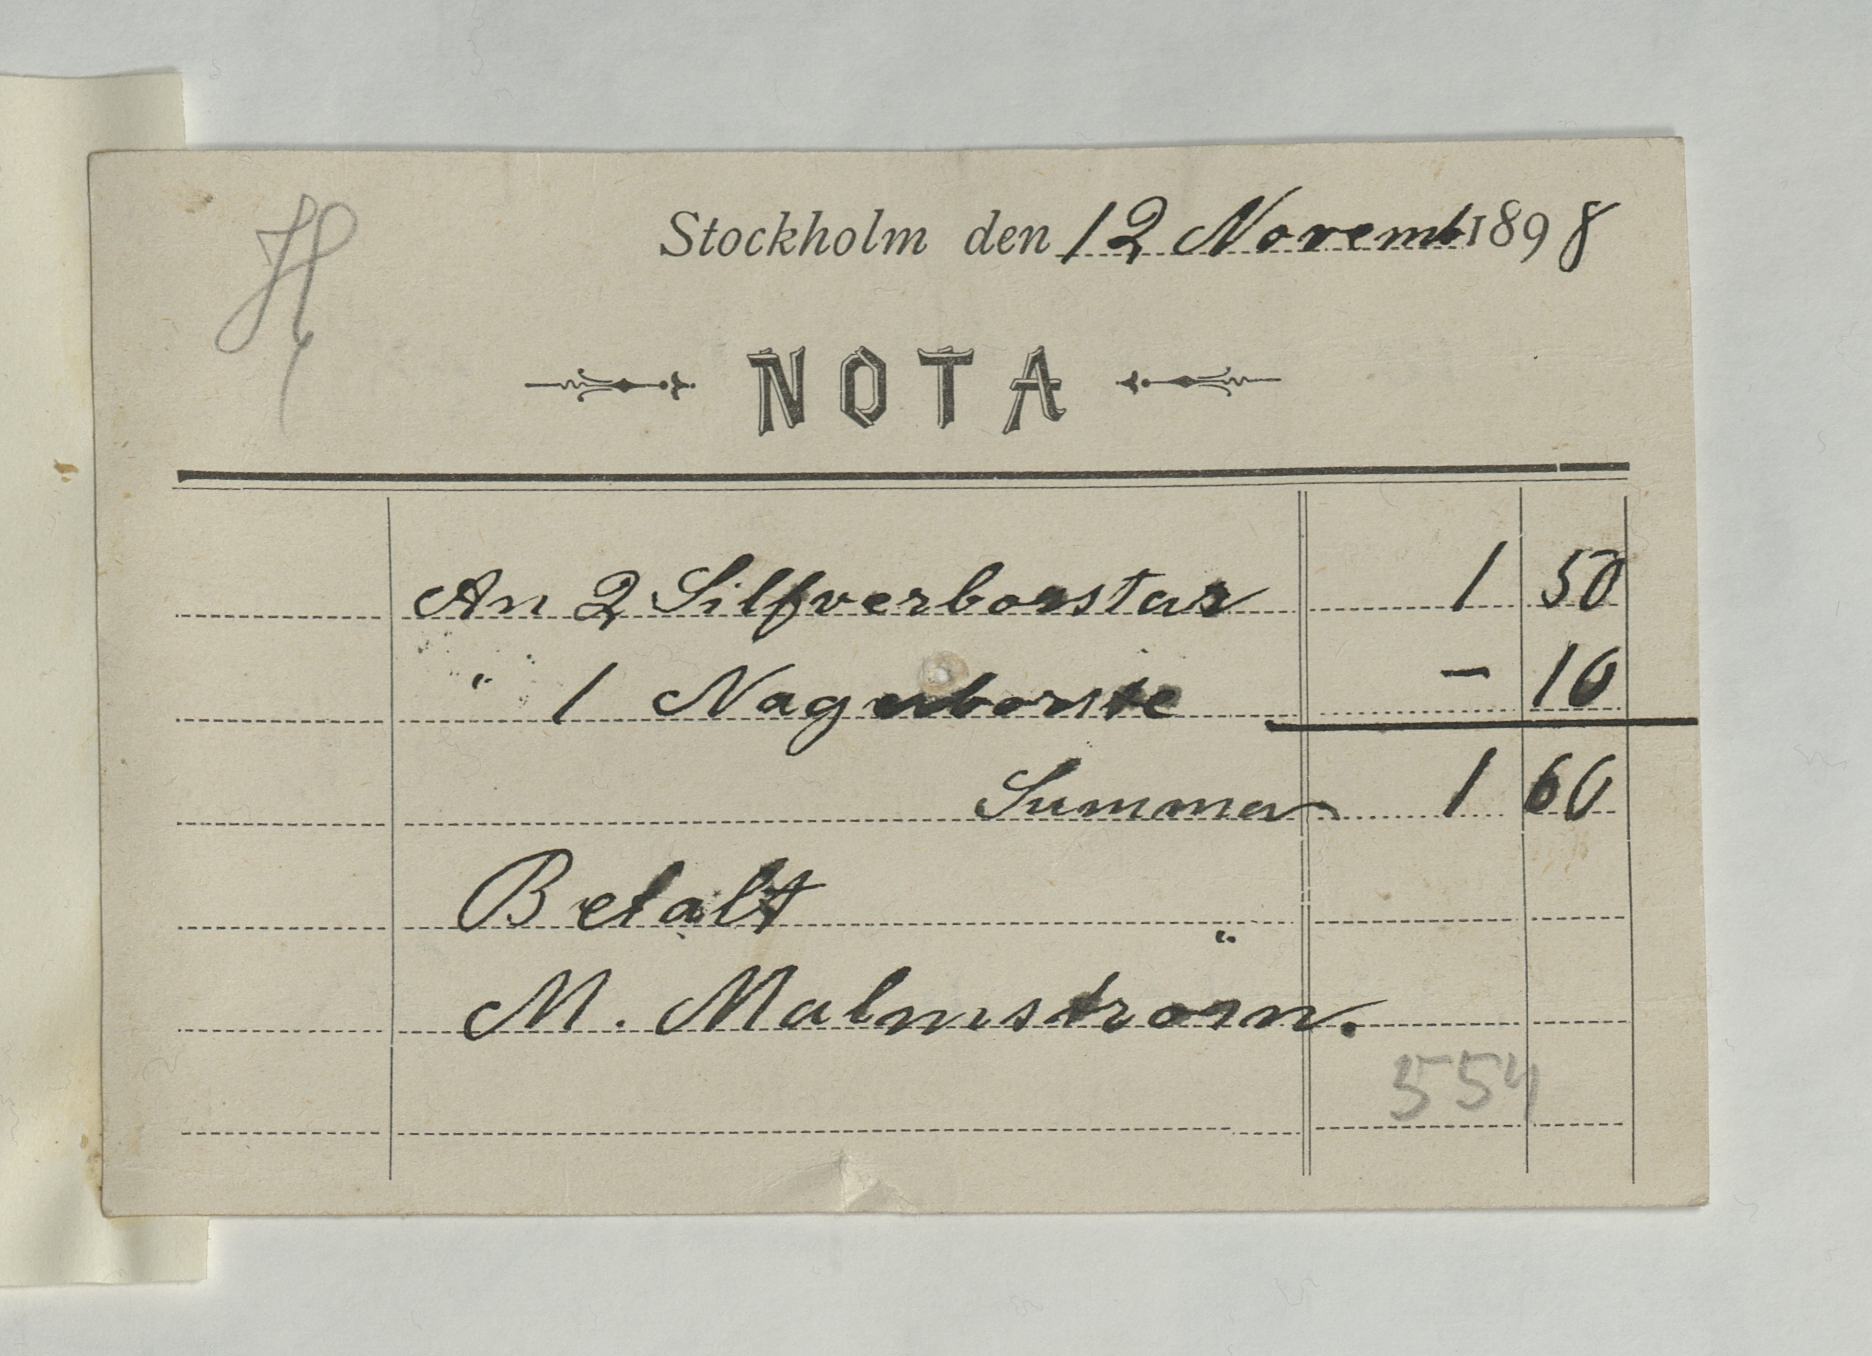 H
Stockholm den 12 Novemb 1898
NOTA
An 2 Silfverborstar 1 50
" 1 Nagelborste – 10
Summa 1 60
Betalt
M. Malmström.
554